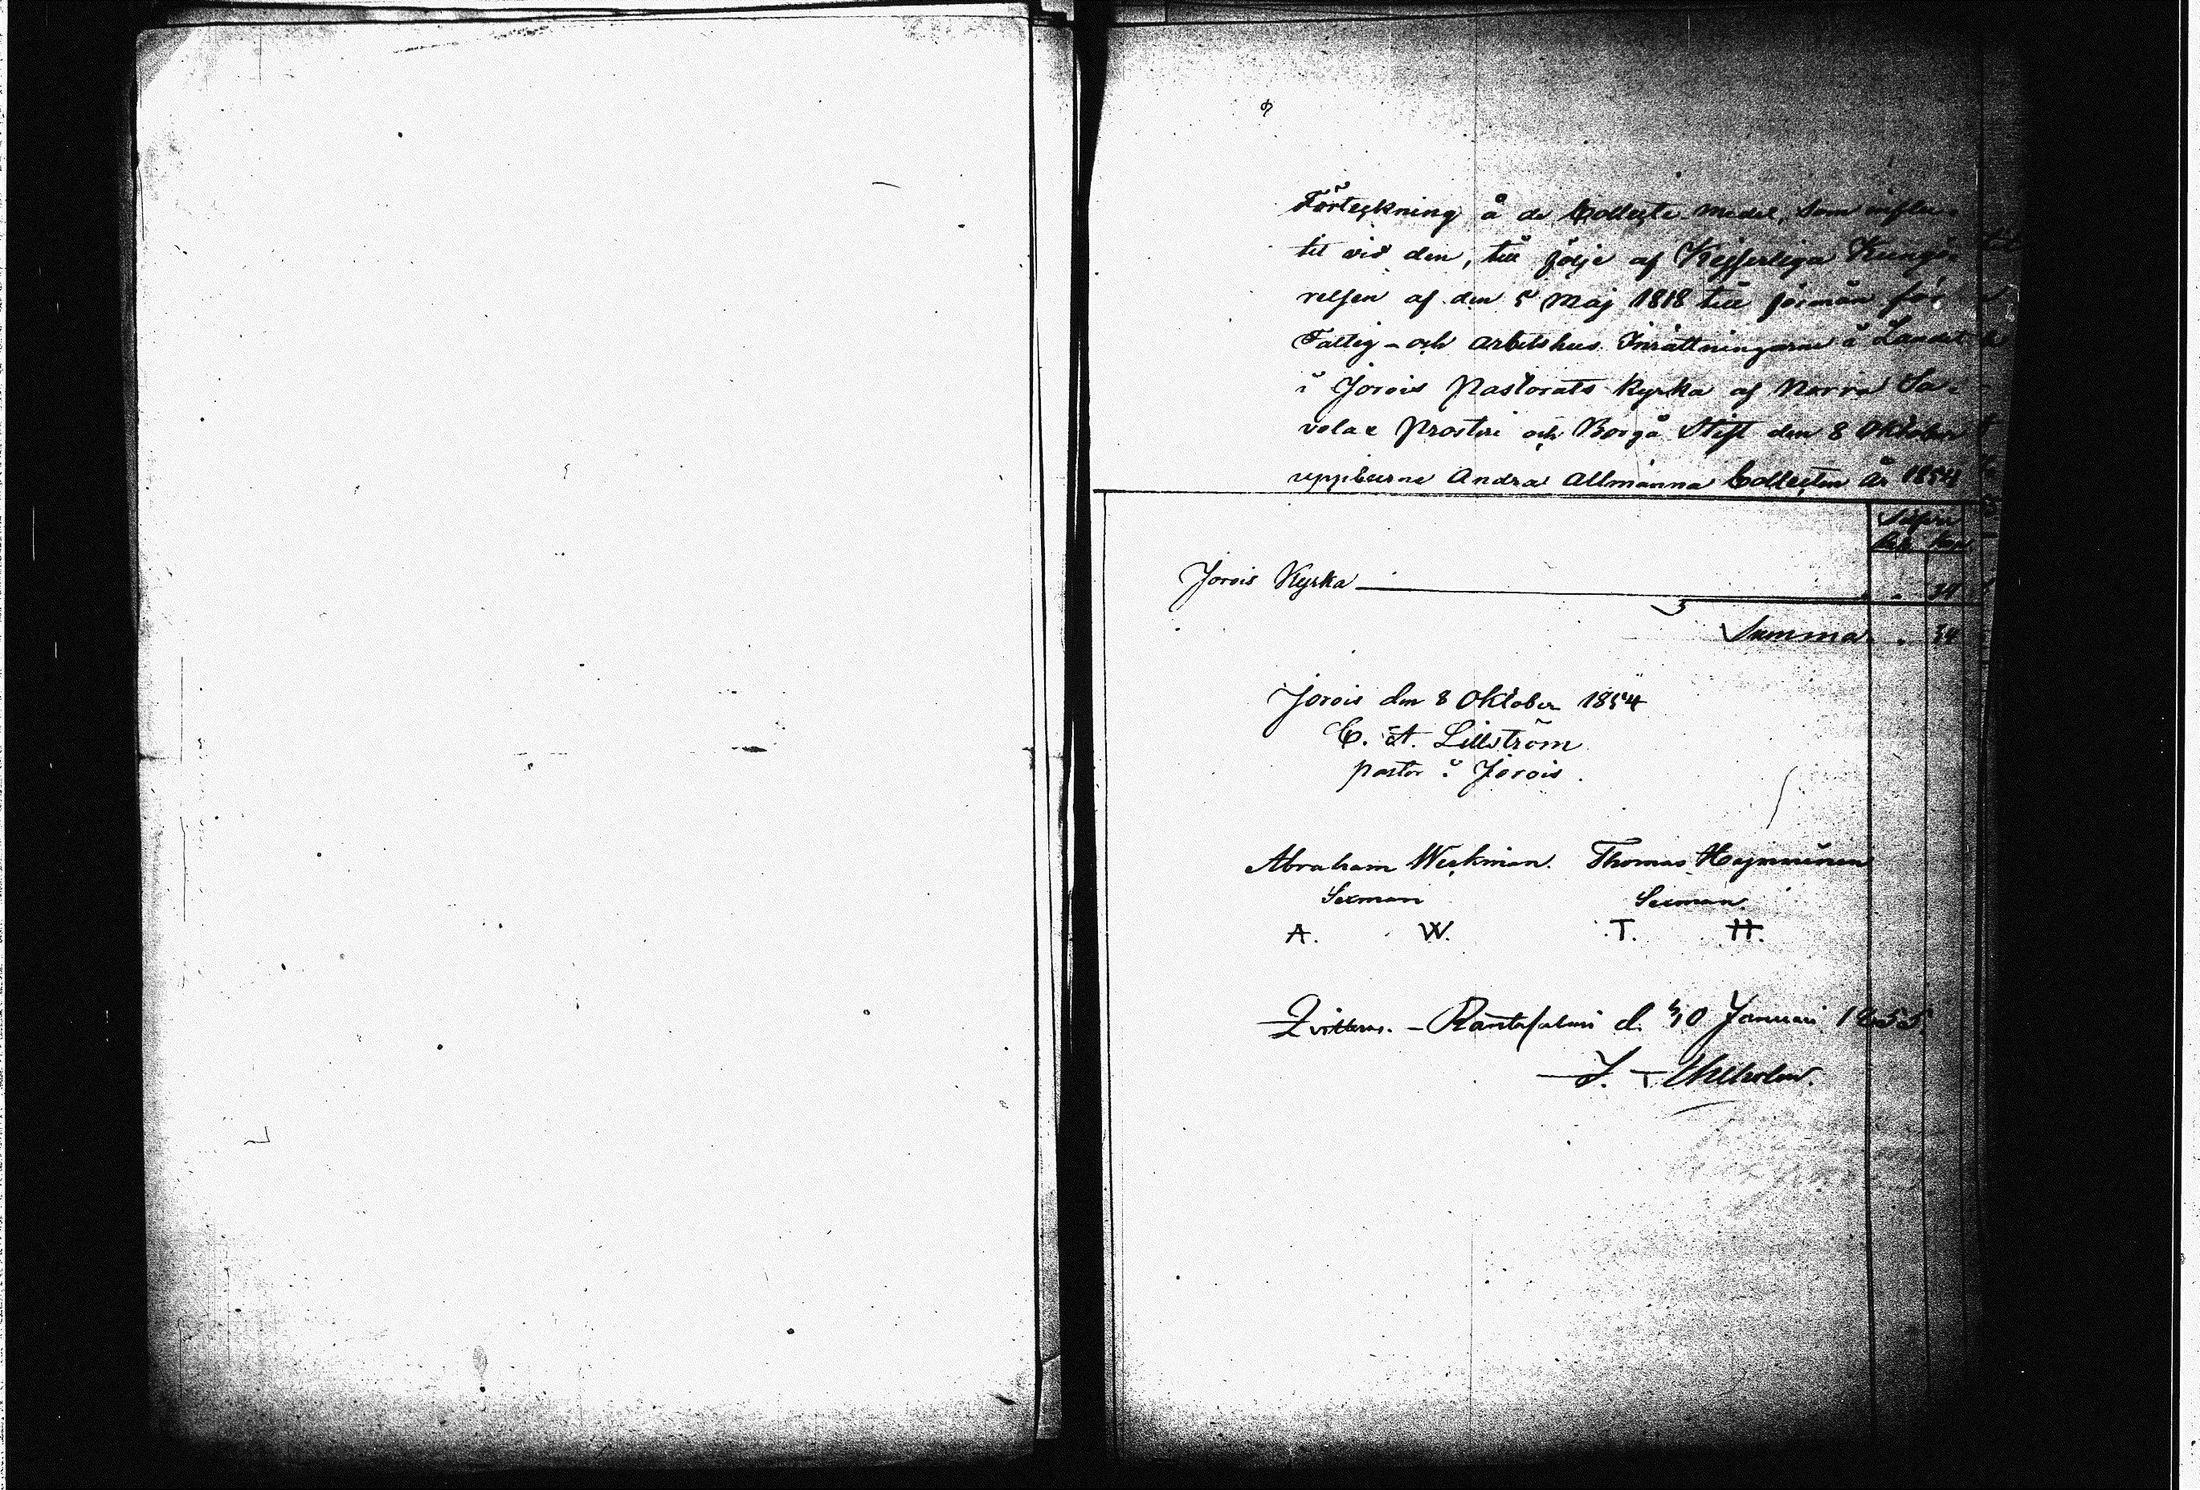 Förteckning å de Collecte medel, som influ-
tit vid den, till följe af Kejserliga Kungö-
relsen af den 5 Maj 1818 till förmån för
Fattig- och Arbetshus Inrättningarne å Landet
i Jorois Pastorats Kyrka af Norra Sa-
volax Prosteri och Borgå Stift den 8 Oktober
uppburne Andra Allmänna Collecten År 1854
Silfver
Rub. Kop.
Jorois Kyrka 34
Summa 34
Jorois den 8 Oktober 1854
C. A. Lillström
pastor i Jorois.
Abraham Weckman. Thomas
Sexman Sexman.
A. W. T. H.
Qvitteras. - Rantasalmi d. 30 Januari 1855.